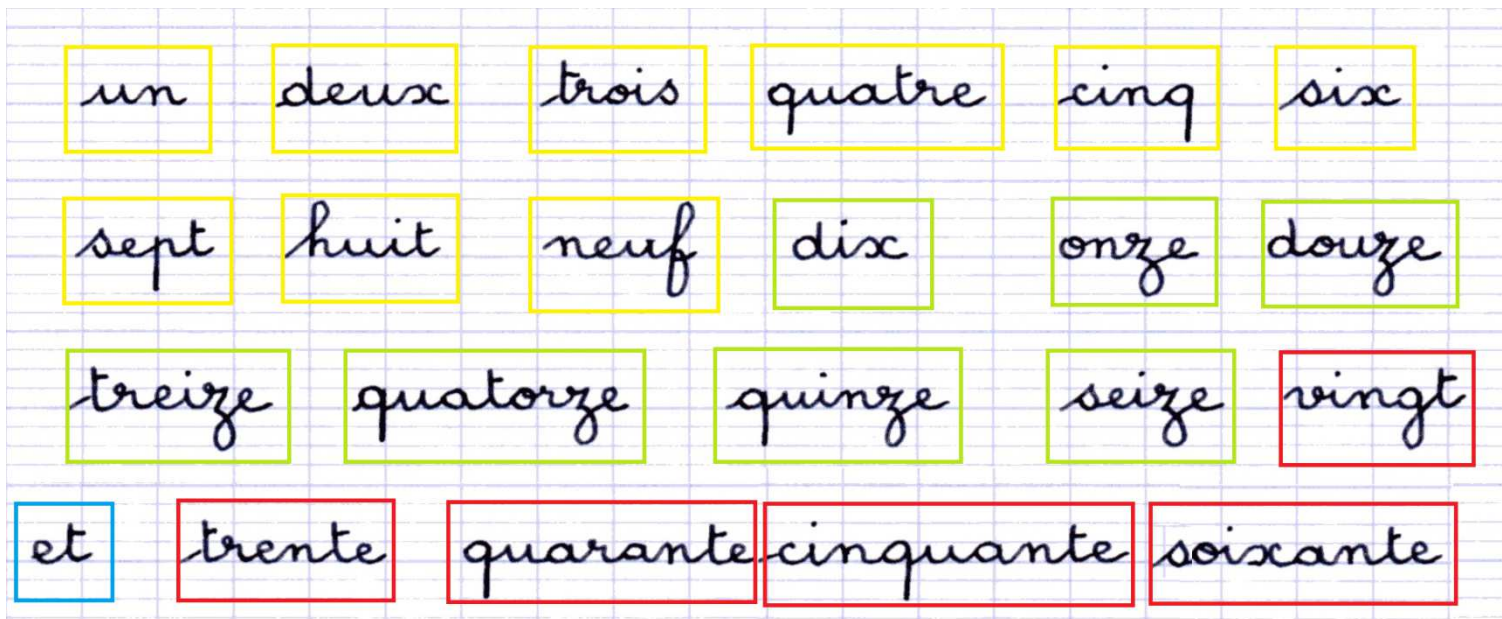 un deux trois quatre cinq six
sept huit neuf dix onze douze
treize quatorze quinze seize vingt
et trente quarante cinquante soixante